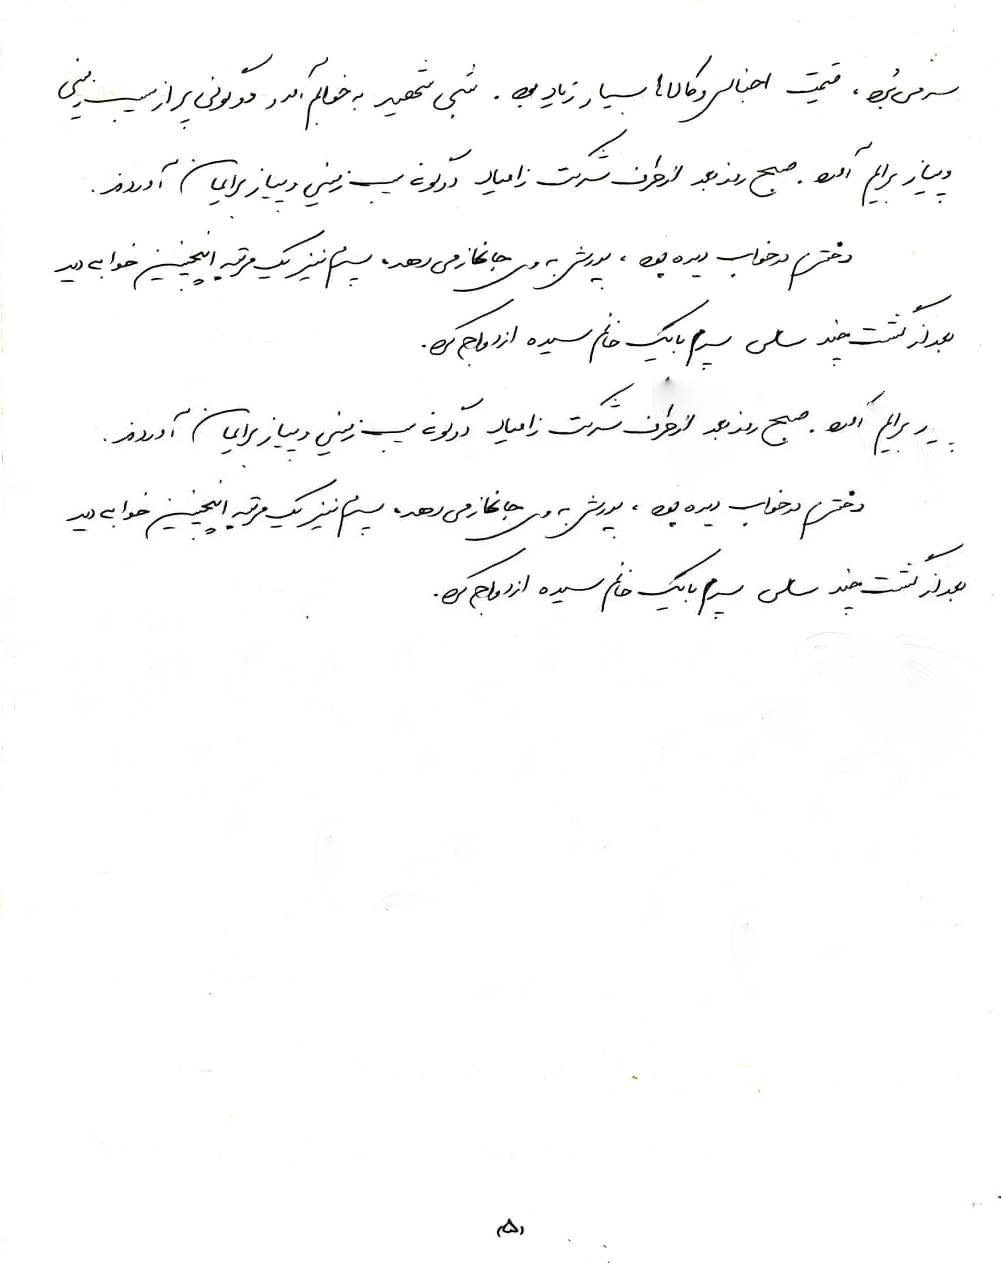 سر می برد، قیمت اجناس و کالاها بسیار زیاد بود. شبی شهید به خوابم آمد و دو گونی پر از سیب زمینی
و پیاز برایم آورد. صبح روز بعد از طرف شرکت زامیاد دو گونه سیب زمینی و پیاز برایمان آوردند.
دخترم در خواب دیده بود، پدرش به وی جانماز می دهد، پسرم نیز یک مرتبه اینچنین خوابی دید
بعد از گذشت چند سالی پسرم با یک خانم سیده ازدواج کرد.
برایم آورد. صبح روز بعد از طرف شرکت زامیاد دو گونه سیب زمینی و پیاز برایمان آوردند.
دخترم در خواب دیده بود، پدرش به وی جانماز می دهد، پسرم نیز یک مرتبه اینچنین خوابی دید
بعد از گذشت چند سالی پسرم با یک خانم سیده ازدواج کرد.
(۵)